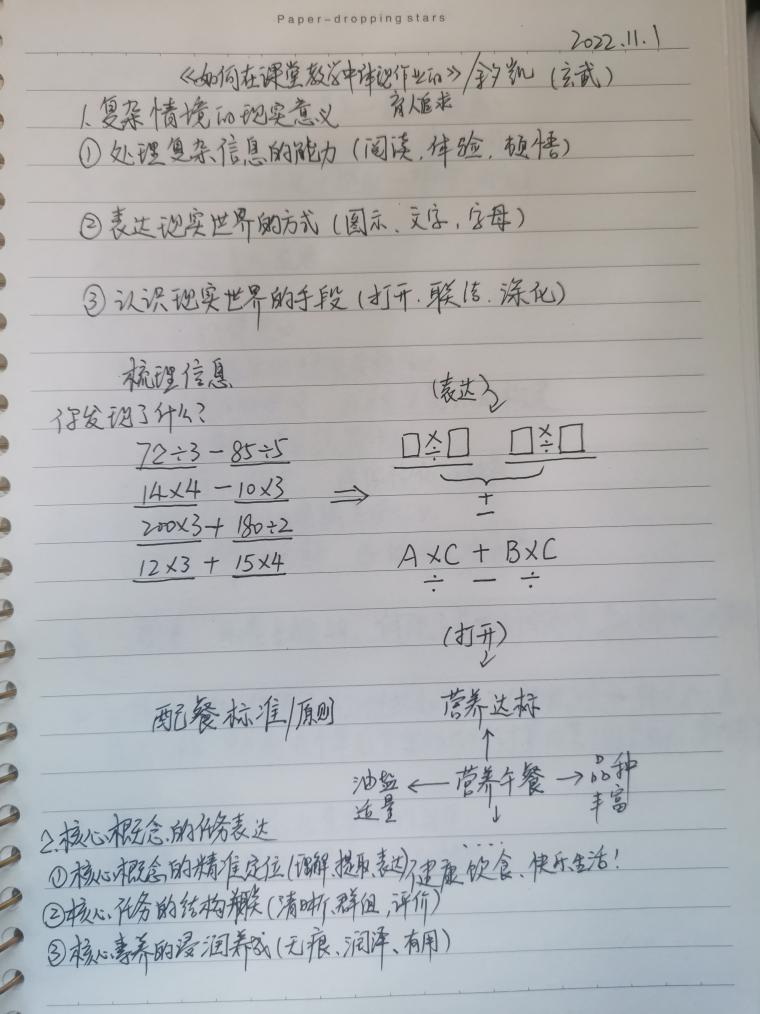 Paper-dropping stars
2022.11.1
《如何在课堂教学中体现作业的》/ 凯 (玄武)
育人追求
1.复杂情境的现实意义
①处理复杂信息的能力(阅读,体验,顿悟)
②表达现实世界的方式(图示、文字,字母)
③认识现实世界的手段(打开.联结.深化)
梳理信息
(表达)
你发现了什么?
72÷3-85÷5
□×÷□ □×÷□
14×4-10×3 ⇒
+
-
200×3+180÷2
12×3+15×4
A×C+B×C
÷ - ÷
(打开)
配餐标准/原则
营养达标
油盐适量 ← 营养午餐 → 品种丰富
2.核心概念的任务表达
....
①核心概念的精准定位(理解、提取、表达)
健康饮食、快乐生活!
②核心任务的结构关联(清晰、群组,评价)
③核心素养的浸润养成(无痕、润泽、有用)